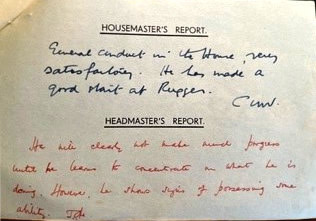 HOUSEMASTER'S REPORT.
General conduct in the House, very
satisfactory. He has made a
good start at Rugger.
HEADMASTER'S REPORT.
He will clearly not make much progress
until he learns to concentrate on what he is
doing. However, he shows signs of possessing some
ability.